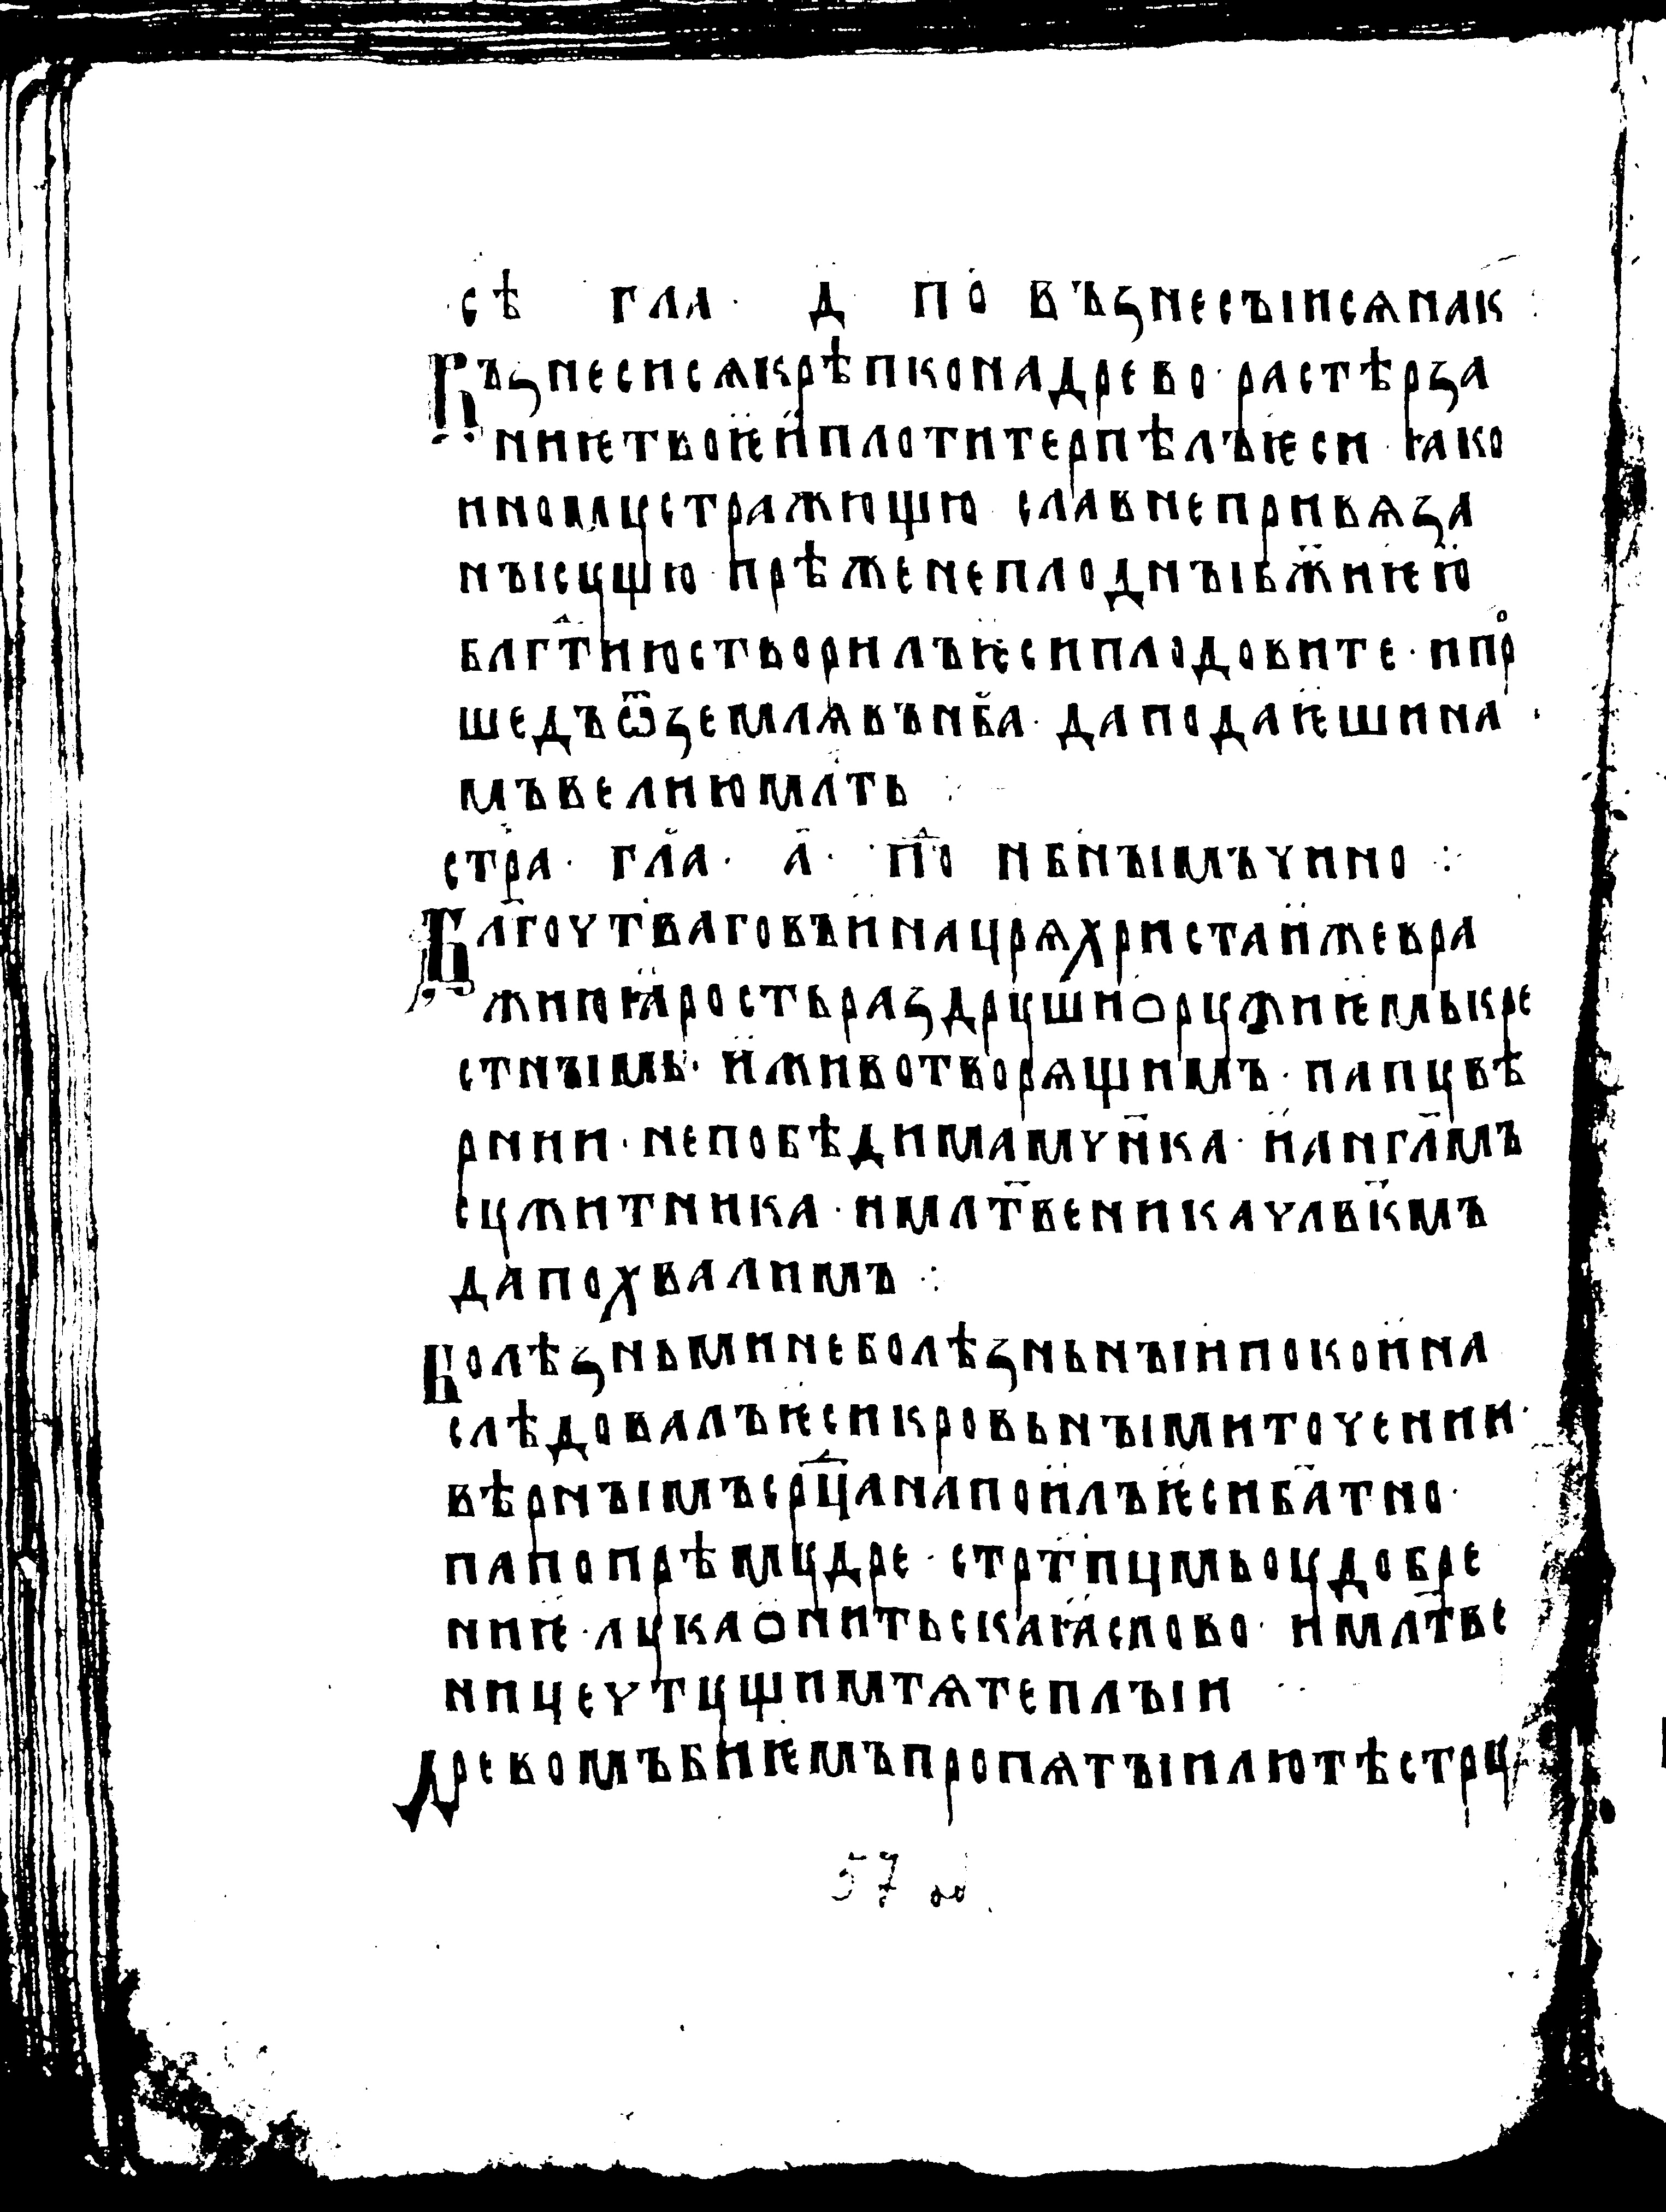 сѣ гла · д по въꙁнесыисѧнак :
Въꙁнесисѧкрѣпконадрево · растѣрꙁа
ниѥтвоѥӥплотитерпѣлъѥси · ꙗко
иномꙋстражющю славнепривѧꙁа
нысꙋщю прѣженеплодныбж҃иѥю
блгт҃июстворилъѥсиплодовите · ипр
шедъѿꙁемлѧвънб҃а · даподаѥшина ·
мъвелиюмлть :
стра · гла · а · п҃о нбнымъчино :
Бл҃гоутваговъӥнацрѧхристаӥжевра
жиюꙗростьраꙁдрꙋшиорꙋжиѥмькре
стнымь · ӥживотворѧщимъ · папꙋвѣ
рнии · непобѣдимамчн҃ка · ӥангл҃мъ
сꙋжитника · имлт҃веникачлвк҃мъ
дапохвалимъ :
Болѣꙁньминеболѣꙁньныипокоӥна
слѣдовалъѥсикровьнымиточении ·
вѣрнымъсрц҃анапоӥлъѥсиба҃тно ·
папопрѣмꙋдре · стртпꙋмьоудобре
ниѥ · лꙋкаонитьскаꙗслово · имлт҃ве
ницечтꙋщимтѧтеплыи
Древомъбниѥмъпропѧтыилютѣстрꙋ
57 об.